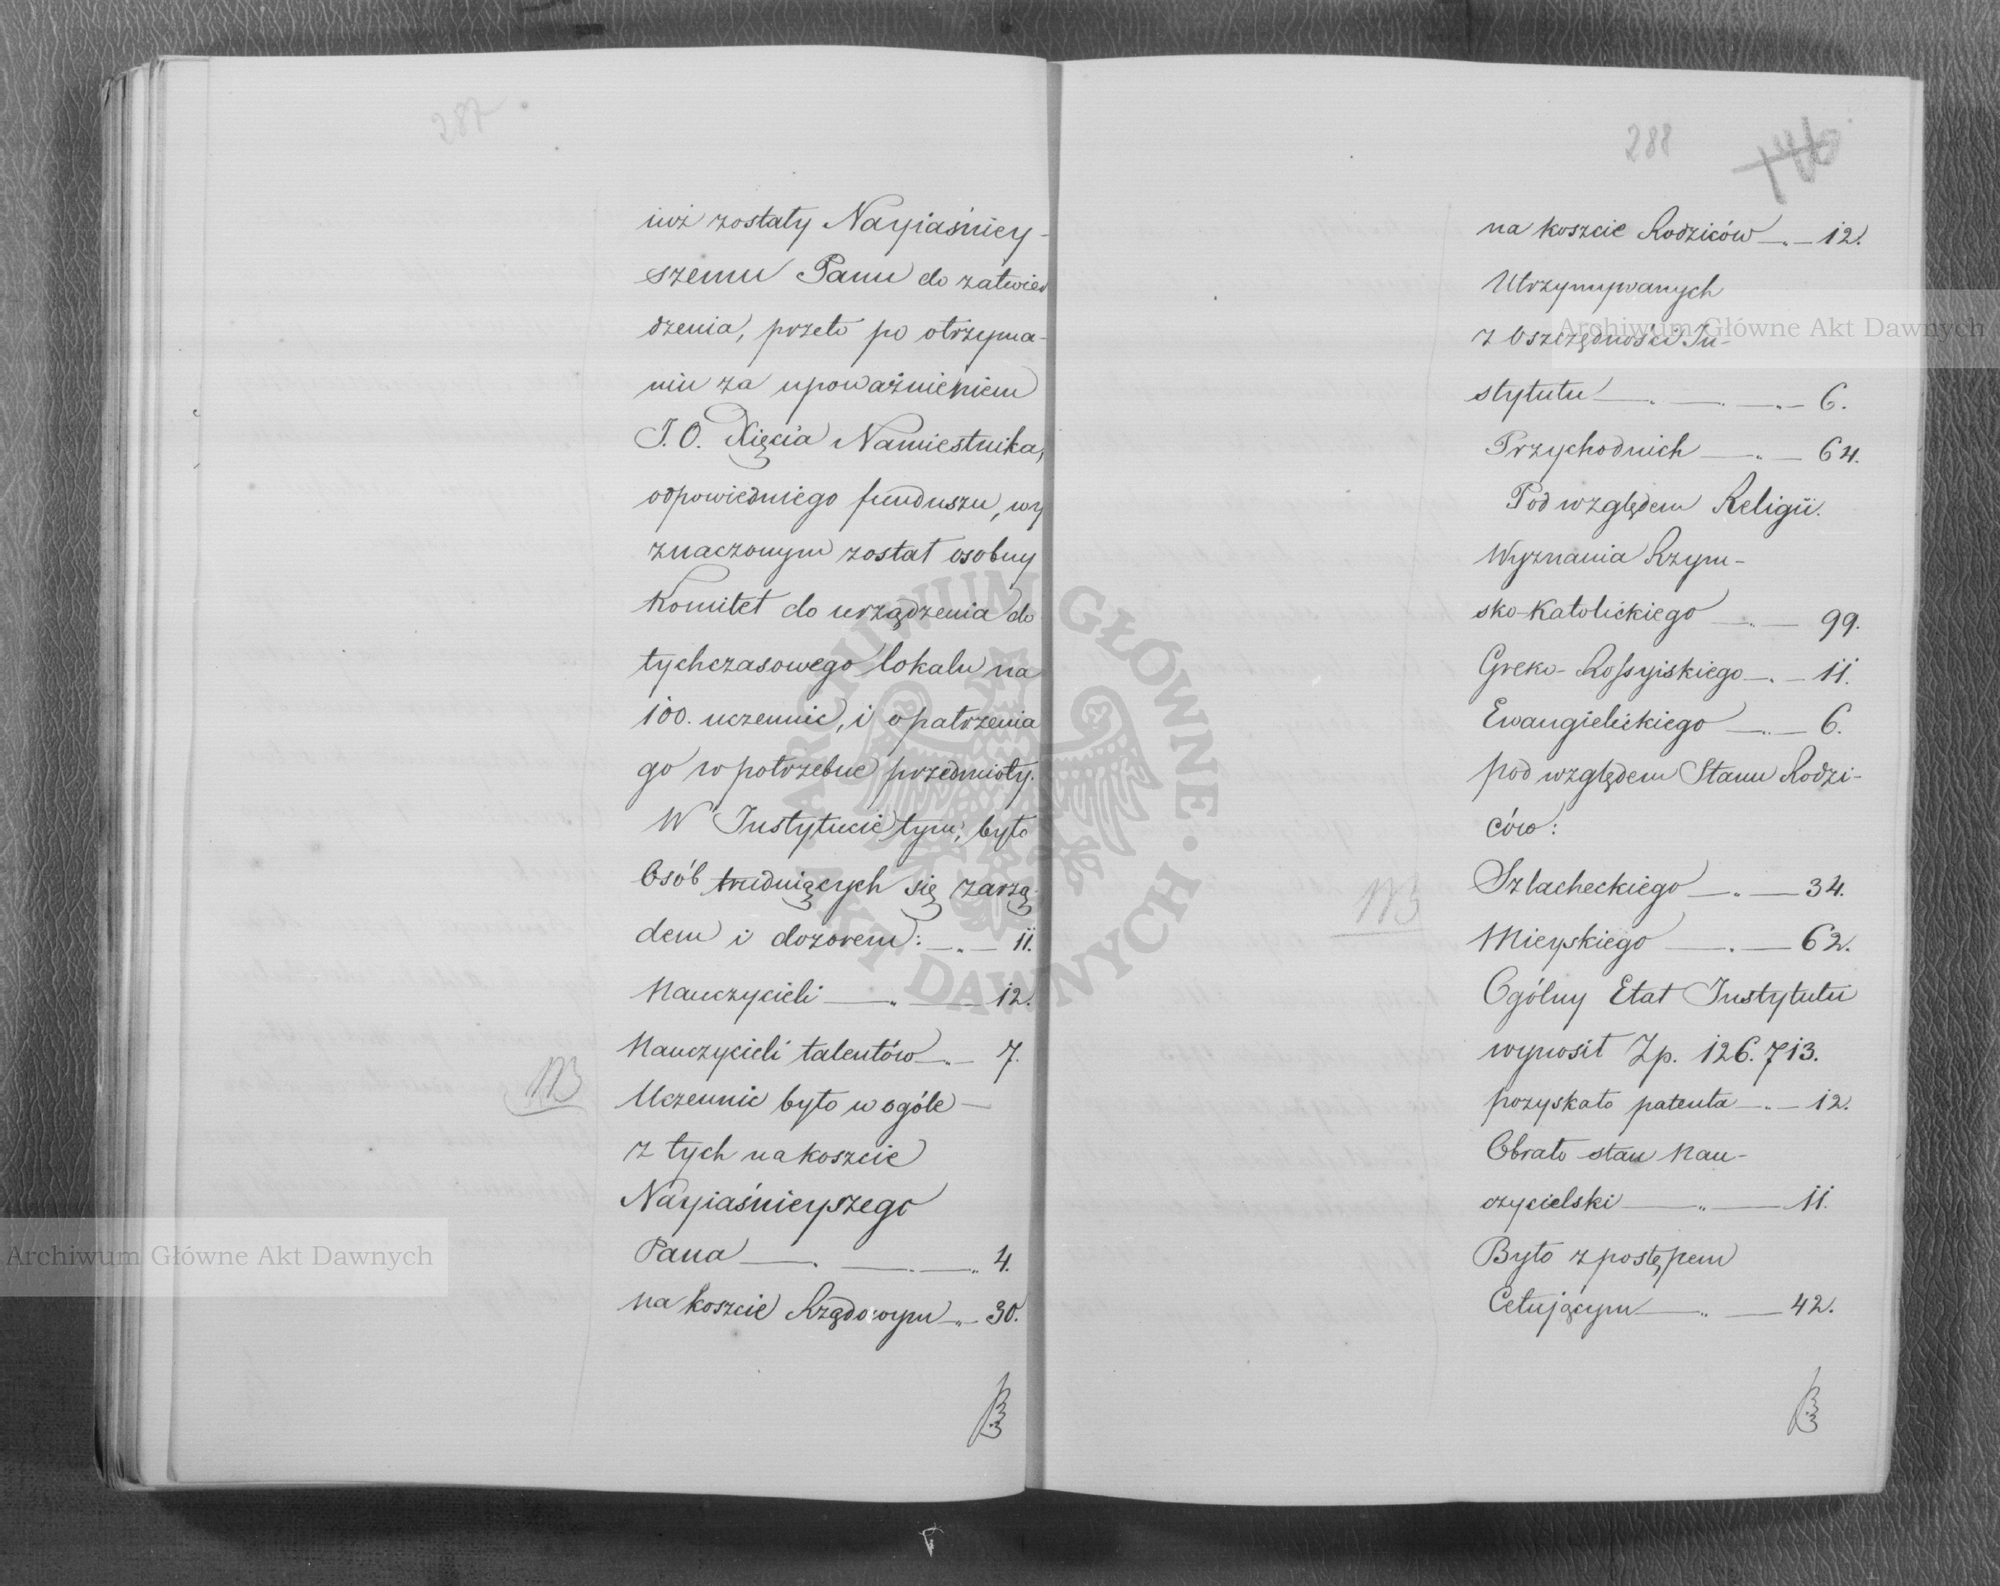 287
iuż zostały Nayiaśniey-
szemu Panu do zatwier
dzenia, przeto po otrzyma-
niu za upoważnieniem
J.O. Xięcia Namiestnika,
odpowiedniego funduszu, wy
znaczonym został osobny
Komitet do urządzenia do
tychczasowego lokalu na
100. uczennic, i opatrzenia
go w potrzebne przedmioty.
W Instytucie tym, było
Osób trudniących się zarzą-
dem i dozorem: —„— 11.
Nauczycieli —„— 12.
Nauczycieli talentów —„— 7.
Uczennic było w ogóle —
z tych na koszcie
Nayiaśnieyszego
Pana —„— 4.
na koszcie Rządowym —„— 30.
288
140
na koszcie Rodziców —„— 12.
Utrzymywanych
z Oszczędności In-
stytutu —„— 6.
Przychodnich —„— 64.
Pod względem Religii.
Wyznania Rzym-
sko-Katolickiego —„— 99.
Greko-Rossyiskiego —„— 11.
Ewangielickiego —„— 6.
pod względem Stanu Rodzi-
ców:
Szlacheckiego —„— 34.
Mieyskiego —„— 62.
Ogólny Etat Instytutu
wynosił Zp. 126.713.
pozyskało patenta —„— 12.
Obrało stan Nau-
czycielski —„— 11.
Było z postępem
Celującym —„— 42.
Archiwum Główne Akt Dawnych
Archiwum Główne Akt Dawnych
ARCHIWUM GŁÓWNE · AKT DAWNYCH ·